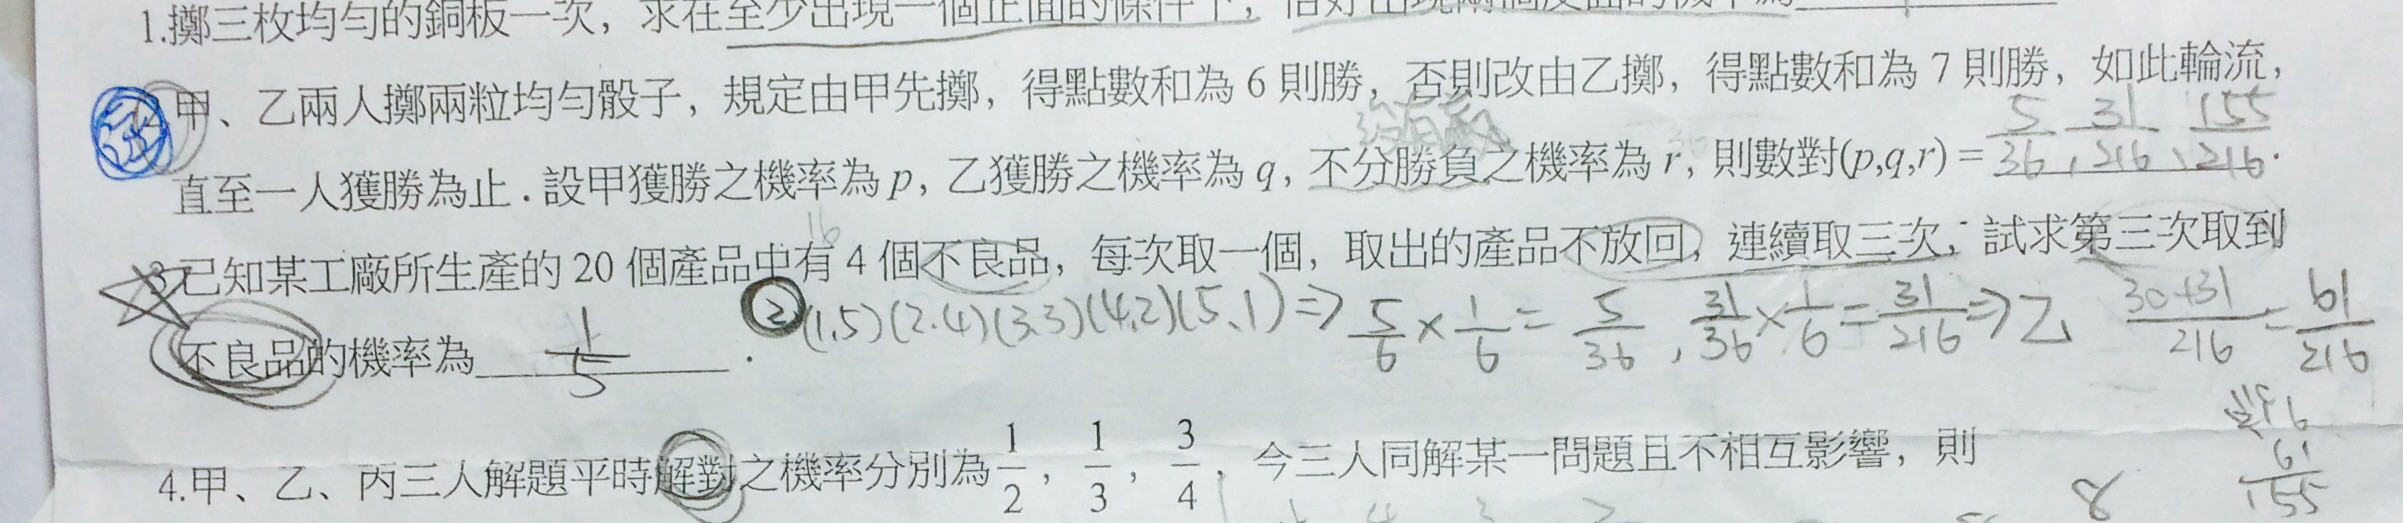 1.擲三枚均勻的銅板一次，求在至少出現一個正面的條件下，恰好出現兩個反面的機率為
甲、乙兩人擲兩粒均勻骰子，規定由甲先擲，得點數和為 6 則勝，否則改由乙擲，得點數和為 7 則勝，如此輪流，
沒有贏
直至一人獲勝為止．設甲獲勝之機率為 p，乙獲勝之機率為 q，不分勝負之機率為 r，則數對(p,q,r) = 5/36 , 31/216 , 155/216 .
16
3.已知某工廠所生產的 20 個產品中有 4 個不良品，每次取一個，取出的產品不放回，連續取三次，試求第三次取到
不良品的機率為 1/5 .
2 (1,5)(2.4)(3,3)(4,2)(5、1) ⇒ 5/6 × 1/6 = 5/36 , 31/36 × 1/6 = 31/216 ⇒ 乙 30+31/216 = 61/216
4.甲、乙、丙三人解題平時解對之機率分別為 1/2 ， 1/3 ， 3/4 ，今三人同解某一問題且不相互影響，則
216
61
155
8